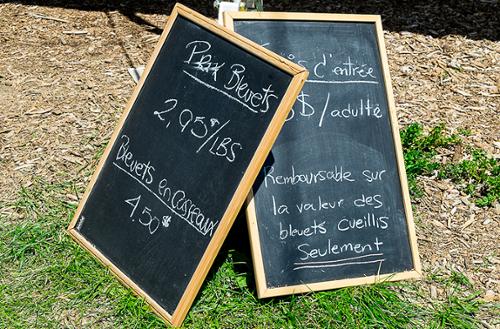 Prix Bleuets
2,95$/LBS
Bleuets en casseaux
4.50$
d'entrée
$/adulte
Remboursable sur
la valeur des
bleuets cueillis
Seulement